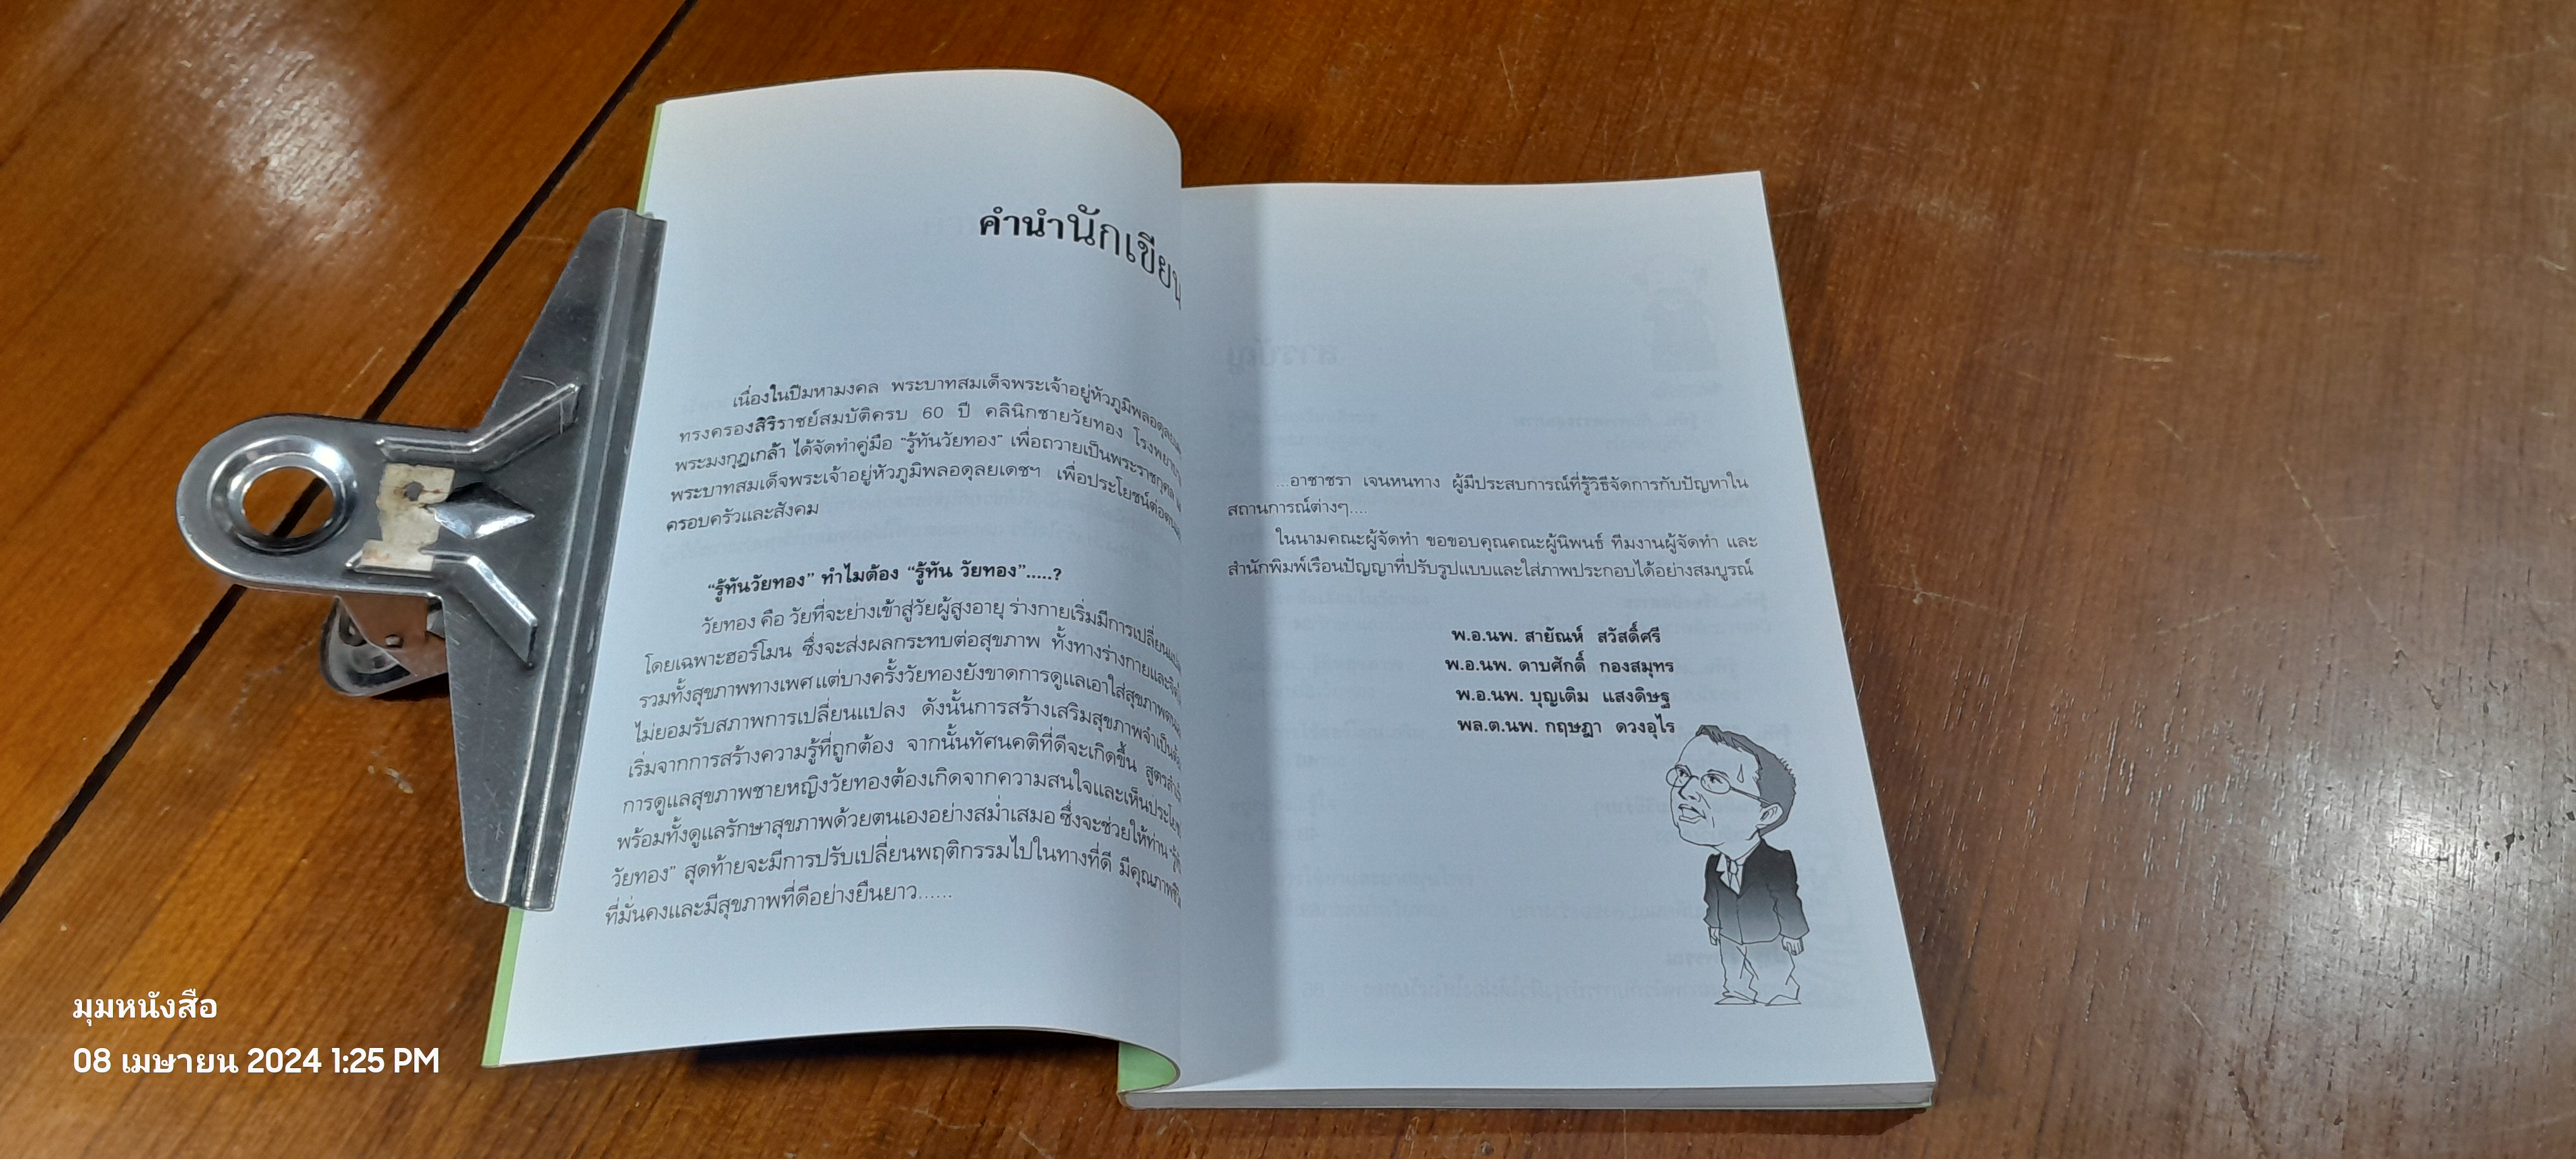 คำนำนักเขียน
เนื่องในปีมหามงคล พระบาทสมเด็จพระเจ้าอยู่หัวภูมิพลอดุลยเดชฯ
ทรงครองสิริราชย์สมบัติครบ 60 ปี คลินิกชายวัยทอง โรงพยาบาล
พระมงกุฎเกล้า ได้จัดทำคู่มือ “รู้ทันวัยทอง” เพื่อถวายเป็นพระราชกุศล
พระบาทสมเด็จพระเจ้าอยู่หัวภูมิพลอดุลยเดชฯ เพื่อประโยชน์ต่อตนเอง
ครอบครัวและสังคม
“รู้ทันวัยทอง” ทำไมต้อง “รู้ทัน วัยทอง”.....?
วัยทอง คือ วัยที่จะย่างเข้าสู่วัยผู้สูงอายุ ร่างกายเริ่มมีการเปลี่ยนแปลง
โดยเฉพาะฮอร์โมน ซึ่งจะส่งผลกระทบต่อสุขภาพ ทั้งทางร่างกายและจิตใจ
รวมทั้งสุขภาพทางเพศ แต่บางครั้งวัยทองยังขาดการดูแลเอาใส่สุขภาพตนเอง
ไม่ยอมรับสภาพการเปลี่ยนแปลง ดังนั้นการสร้างเสริมสุขภาพจำเป็นต้อง
เริ่มจากการสร้างความรู้ที่ถูกต้อง จากนั้นทัศนคติที่ดีจะเกิดขึ้น สูตรสำเร็จ
การดูแลสุขภาพชายหญิงวัยทองต้องเกิดจากความสนใจและเห็นประโยชน์
พร้อมทั้งดูแลรักษาสุขภาพด้วยตนเองอย่างสม่ำเสมอ ซึ่งจะช่วยให้ท่าน “รู้ทัน
วัยทอง” สุดท้ายจะมีการปรับเปลี่ยนพฤติกรรมไปในทางที่ดี มีคุณภาพชีวิต
ที่มั่นคงและมีสุขภาพที่ดีอย่างยืนยาว......
...อาชาชรา เจนหนทาง ผู้มีประสบการณ์ที่รู้วิธีจัดการกับปัญหาใน
สถานการณ์ต่างๆ....
ในนามคณะผู้จัดทำ ขอขอบคุณคณะผู้นิพนธ์ ทีมงานผู้จัดทำ และ
สำนักพิมพ์เรือนปัญญาที่ปรับรูปแบบและใส่ภาพประกอบได้อย่างสมบูรณ์
พ.อ.นพ. สายัณห์ สวัสดิ์ศรี
พ.อ.นพ. ดาบศักดิ์ กองสมุทร
พ.อ.นพ. บุญเติม แสงดิษฐ
พล.ต.นพ. กฤษฎา ดวงอุไร
มุมหนังสือ
08 เมษายน 2024 1:25 PM